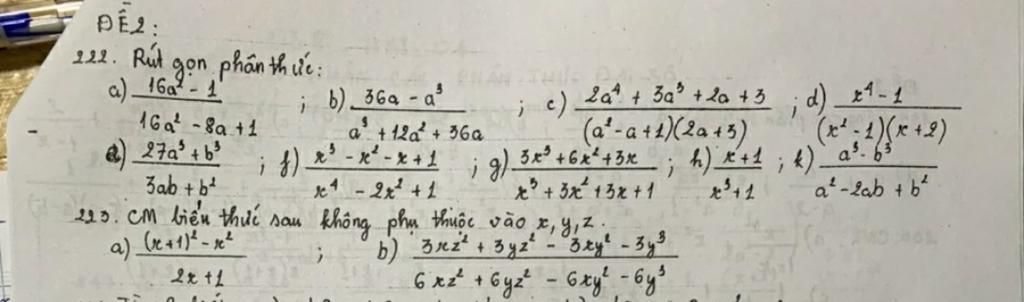 ĐỀ 2:
222. Rút gọn phân thức:
a) (16a² - 1)/(16a² - 8a + 1) ; b) (36a - a³)/(a³ + 12a² + 36a) ; c) (2a⁴ + 3a³ + 2a + 3)/((a² - a + 1)(2a + 3)) ; d) (x⁴ - 1)/((x² - 1)(x + 2))
e) (27a³ + b³)/(3ab + b²) ; f) (x³ - x² - x + 1)/(x⁴ - 2x² + 1) ; g) (3x³ + 6x² + 3x)/(x³ + 3x² + 3x + 1) ; h) (x + 1)/(x³ + 1) ; k) (a³ - b³)/(a² - 2ab + b²)
223. CM biểu thức sau không phụ thuộc vào x, y, z.
a) ((x+1)² - x²)/(2x + 1) ; b) (3xz² + 3yz² - 3xy² - 3y³)/(6xz² + 6yz² - 6xy² - 6y³)